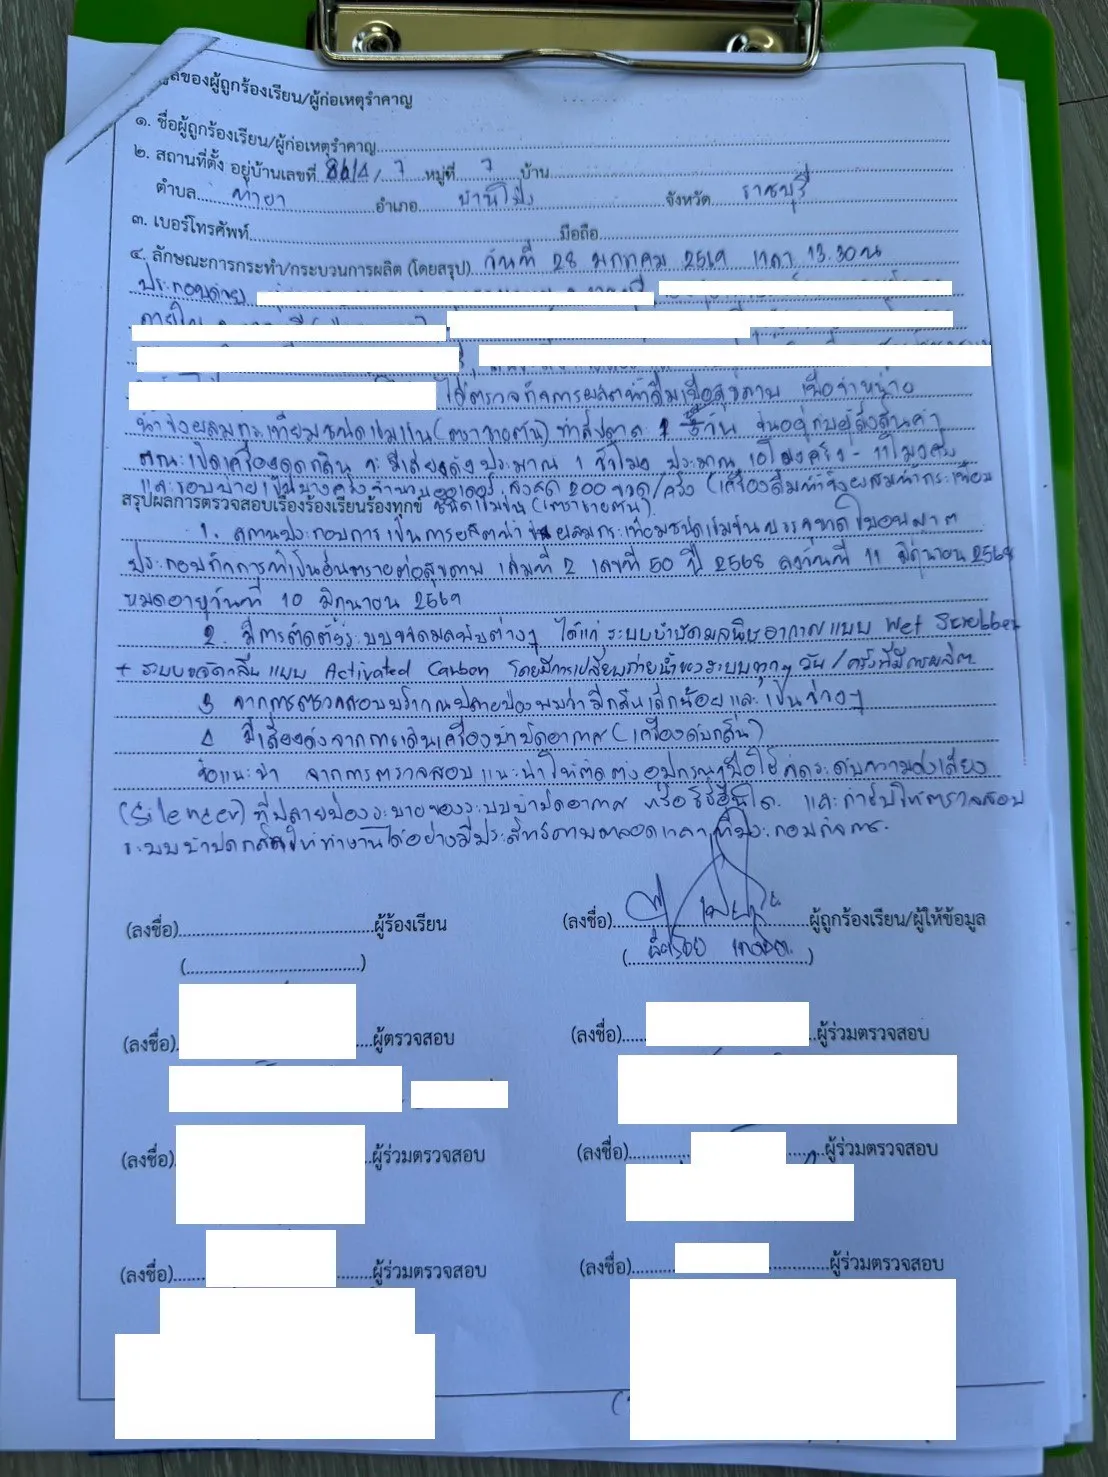 ของผู้ถูกร้องเรียน/ผู้ก่อเหตุรำคาญ
๑. ชื่อผู้ถูกร้องเรียน/ผู้ก่อเหตุรำคาญ
๒. สถานที่ตั้ง อยู่บ้านเลขที่ 86/4/7 หมู่ที่ 7 บ้าน
ตำบล ท่าผา อำเภอ บ้านโป่ง จังหวัด ราชบุรี
๓. เบอร์โทรศัพท์ มือถือ
๔. ลักษณะการกระทำ/กระบวนการผลิต (โดยสรุป) วันที่ 28 มกราคม 2569 เวลา 13.30 น
ประกอบด้วย
ภายใน
ได้ตรวจกิจการผลิตน้ำดื่มเพื่อสุขภาพ เพื่อจำหน่าย
น้ำขิงผสมกระเทียมชนิดเข้มข้น ทำสัปดาห์ละ ขึ้นอยู่กับผู้สั่งสินค้า
ขณะเปิดเครื่องดูดกลิ่น จะมีเสียงดังประมาณ 1 ชั่วโมง ประมาณ 10 โมงครึ่ง - 11 โมงครึ่ง
และรอบบ่ายเป็นบางครั้ง จำนวนออเดอร์ สูงสุด 200 ขวด/ครั้ง (เครื่องดื่มน้ำขิงผสมน้ำกระเทียม
สรุปผลการตรวจสอบเรื่องร้องเรียนร้องทุกข์ ชนิดเข้มข้น
1. สถานประกอบการเป็นการผลิตน้ำขิงผสมกระเทียมชนิดเข้มข้นบรรจุขวด ใบอนุญาต
ประกอบกิจการที่เป็นอันตรายต่อสุขภาพ เล่มที่ 2 เลขที่ 50 ปี 2568 ลงวันที่ 11 มิถุนายน 2568
หมดอายุวันที่ 10 มิถุนายน 2569
2. มีการติดตั้งระบบขจัดมลพิษต่างๆ ได้แก่ ระบบบำบัดมลพิษอากาศแบบ Wet Scrubber
+ ระบบขจัดกลิ่นแบบ Activated Carbon โดยมีการเปลี่ยนถ่ายน้ำของระบบทุกๆ วัน/ครั้งที่มีการผลิต
3 จากการตรวจสอบบริเวณปลายปล่องพบว่า มีกลิ่นเล็กน้อยและเป็นช่วงๆ
4 มีเสียงดังจากการเดินเครื่องบำบัดอากาศ (เครื่องดับกลิ่น)
ข้อแนะนำ จากการตรวจสอบแนะนำให้ติดตั้งอุปกรณ์เพื่อใช้ลดระดับความดังเสียง
(Silencer) ที่ปลายปล่องระบายของระบบบำบัดอากาศ หรือวิธีอื่นใด และกำชับให้ตรวจสอบ
ระบบบำบัดกลิ่นให้ทำงานได้อย่างมีประสิทธิภาพตลอดเวลาที่ประกอบกิจการ.
(ลงชื่อ) ผู้ร้องเรียน (ลงชื่อ) ผู้ถูกร้องเรียน/ผู้ให้ข้อมูล
(ลงชื่อ) ผู้ตรวจสอบ (ลงชื่อ) ผู้ร่วมตรวจสอบ
(ลงชื่อ) ผู้ร่วมตรวจสอบ (ลงชื่อ) ผู้ร่วมตรวจสอบ
(ลงชื่อ) ผู้ร่วมตรวจสอบ (ลงชื่อ) ผู้ร่วมตรวจสอบ